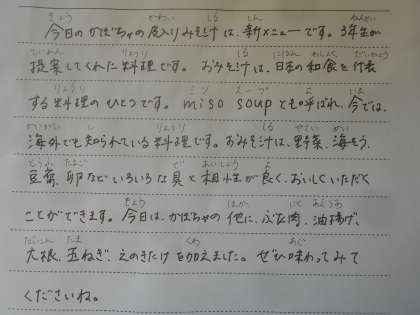 今日のかぼちゃの皮入りみそ汁は、新メニューです。3年生が
提案してくれた料理です。おみそ汁は、日本の和食を代表
する料理のひとつです。miso soupとも呼ばれ、今では、
海外でも知られている料理です。おみそ汁は、野菜、海そう、
豆腐、卵などいろいろな具と相性が良く、おいしくいただく
ことができます。今日は、かぼちゃの他に、ぶた肉、油揚げ、
大根、玉ねぎ、えのきたけを加えました。ぜひ味わってみて
くださいね。